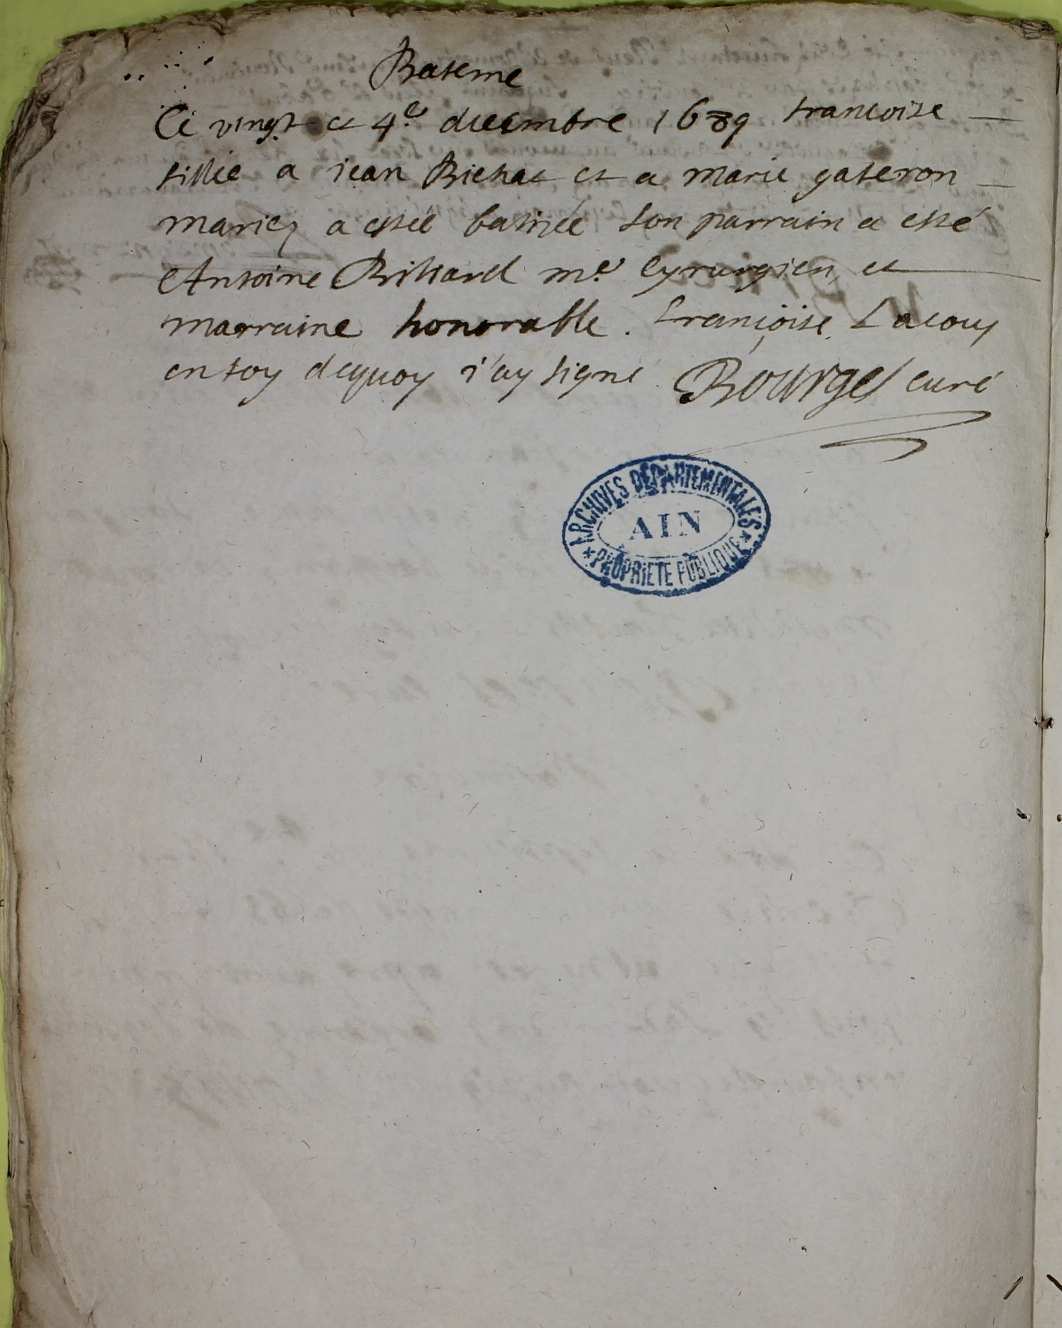 Bateme
Ce vingt et 4e decembre 1689 francoise
fillie a jean Bichat et a marie gateron
mariez a estée batisée son parrain a esté
Antoine Brissard me cyrurgien et
marraine honorable françoise Lacouz
en foy dequoy j'ay signé Bourges curé
ARCHIVES DÉPARTEMENTALES
AIN
PROPRIÉTÉ PUBLIQUE